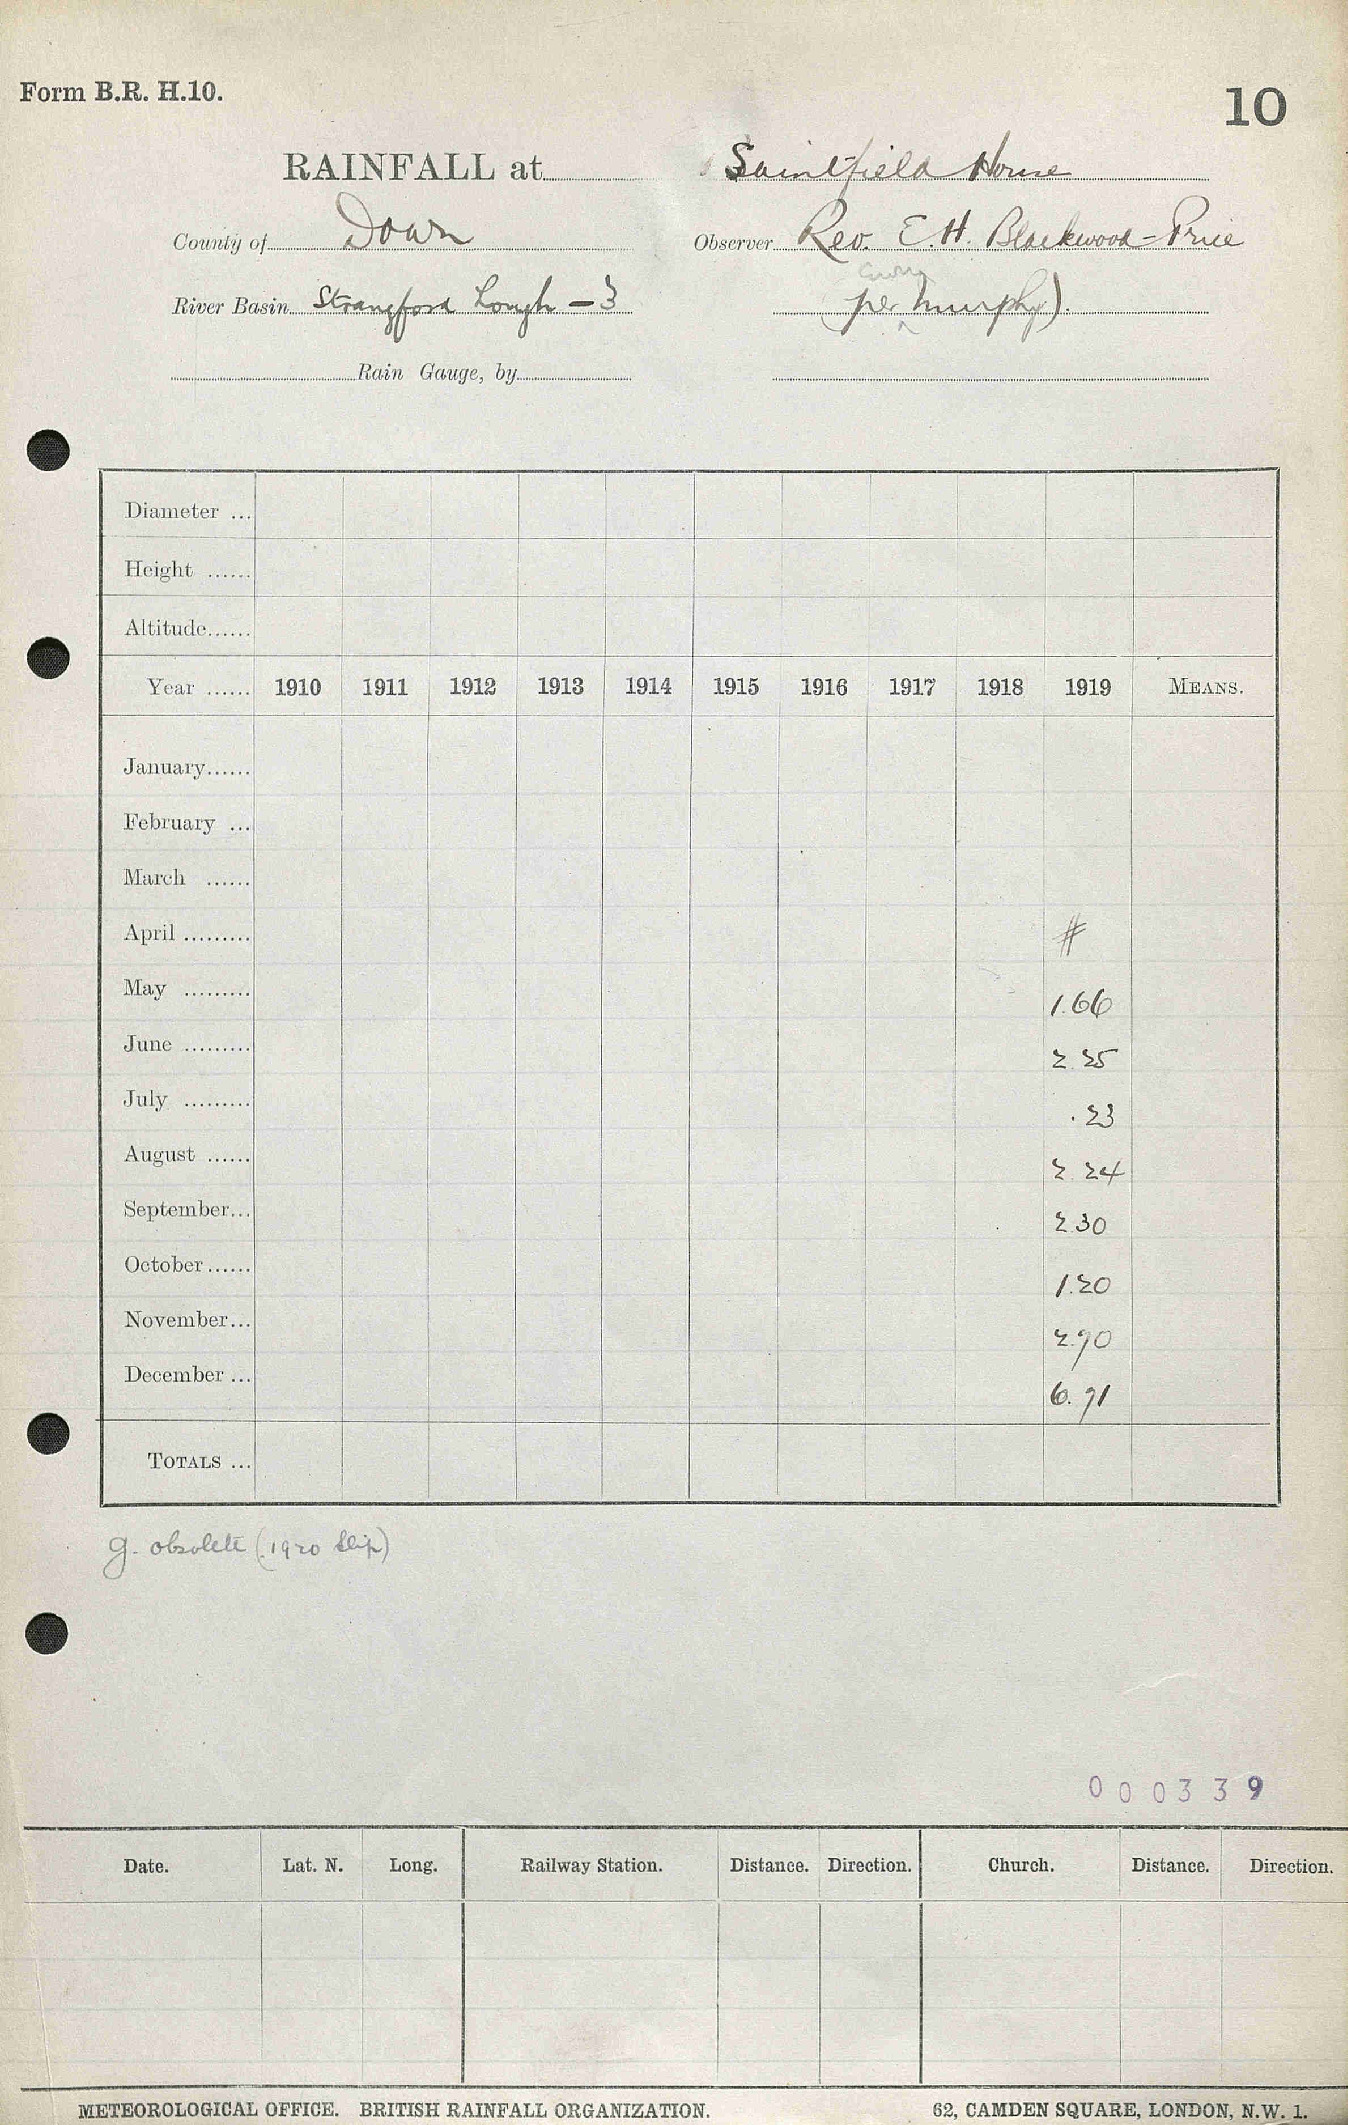 Form B.R. H.10.
10
RAINFALL at Saintfield House
County of Down
Observer Rev. E.H. Blackwood-Price
River Basin Strangford Lough - 3
(per Murphy).
Rain Gauge, by
Diameter ...
Height ......
Altitude......
Year ...... 1910 1911 1912 1913 1914 1915 1916 1917 1918 1919 MEANS.
January......
February ...
March ......
April ......... #
May ......... 1.66
June ......... 2.25
July ......... .23
August ...... 2.24
September... 2.30
October...... 1.20
November... 2.90
December ... 6.91
TOTALS ...
g. obsolete (1920 slip)
000339
Date. Lat. N. Long. Railway Station. Distance. Direction. Church. Distance. Direction.
METEOROLOGICAL OFFICE. BRITISH RAINFALL ORGANIZATION. 62, CAMDEN SQUARE, LONDON, N.W. 1.